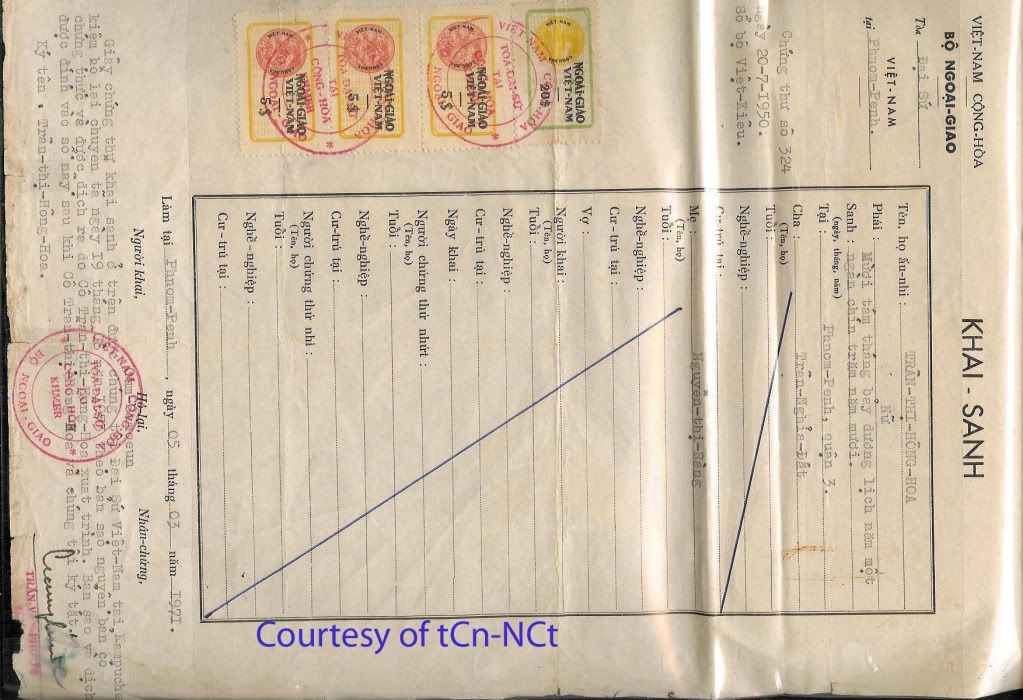 VIỆT-NAM CỘNG-HÒA
BỘ NGOẠI-GIAO
Tòa Đại Sứ
VIỆT-NAM
tại Phnom-Penh.
Chứng thư số 324
ngày 20-7-1950.
Sổ bộ Việt-Kiều.
KHAI - SANH
Tên, họ ấu-nhi : TRẦN-THỊ-HỒNG-HOA
Phái : Nữ
Sanh : Mười tám tháng bảy dương lịch năm một
(ngày, tháng, năm) ngàn chín trăm năm mươi.
Tại : Phnom-Penh, quận 3.
Cha : Trần-Nghĩa-Đắt
(Tên, họ)
Tuổi :
Nghề-nghiệp :
Cư-trú tại :
Mẹ : Nguyễn-thị-Ràng
(Tên, họ)
Tuổi :
Nghề-nghiệp :
Cư-trú tại :
Vợ :
Người khai :
(Tên, họ)
Tuổi :
Nghề-nghiệp :
Cư-trú tại :
Ngày khai :
Người chứng thứ nhứt :
(Tên, họ)
Tuổi :
Nghề-nghiệp :
Cư-trú tại :
Người chứng thứ nhì :
(Tên, họ)
Tuổi :
Nghề-nghiệp :
Cư-trú tại :
Làm tại Phnom-Penh, ngày 05 tháng 03 năm 1971.
Người khai, Hộ-lại, Nhân-chứng,
Giấy chứng thư khai sanh ở trên được chúng tôi Đại Sứ Việt-Nam tại Kampuchea
kiểm bộ lại chuyển tả ngày 19 tháng theo bản sao nguyên bản có
chứng thực và được dịch ra do Cô Trần-thị-Hồng-Hoa xuất trình. Bản sao và dịch
được đính vào sổ này sau khi Cô Trần-thị-Hồng-Hoa và chúng tôi ký tắt.
Ký tên : Trần-thị-Hồng-Hoa.
VIỆT-NAM CỘNG-HÒA
TÒA ĐẠI-SỨ
TẠI
CỘNG-HÒA
KHMER
BỘ NGOẠI-GIAO
VIỆT-NAM
NGOẠI-GIAO
VIỆT-NAM
20$
VIỆT-NAM
NGOẠI-GIAO
VIỆT-NAM
5$
VIỆT-NAM
NGOẠI-GIAO
VIỆT-NAM
5$
VIỆT-NAM
NGOẠI-GIAO
VIỆT-NAM
5$
Courtesy of tCn-NCt